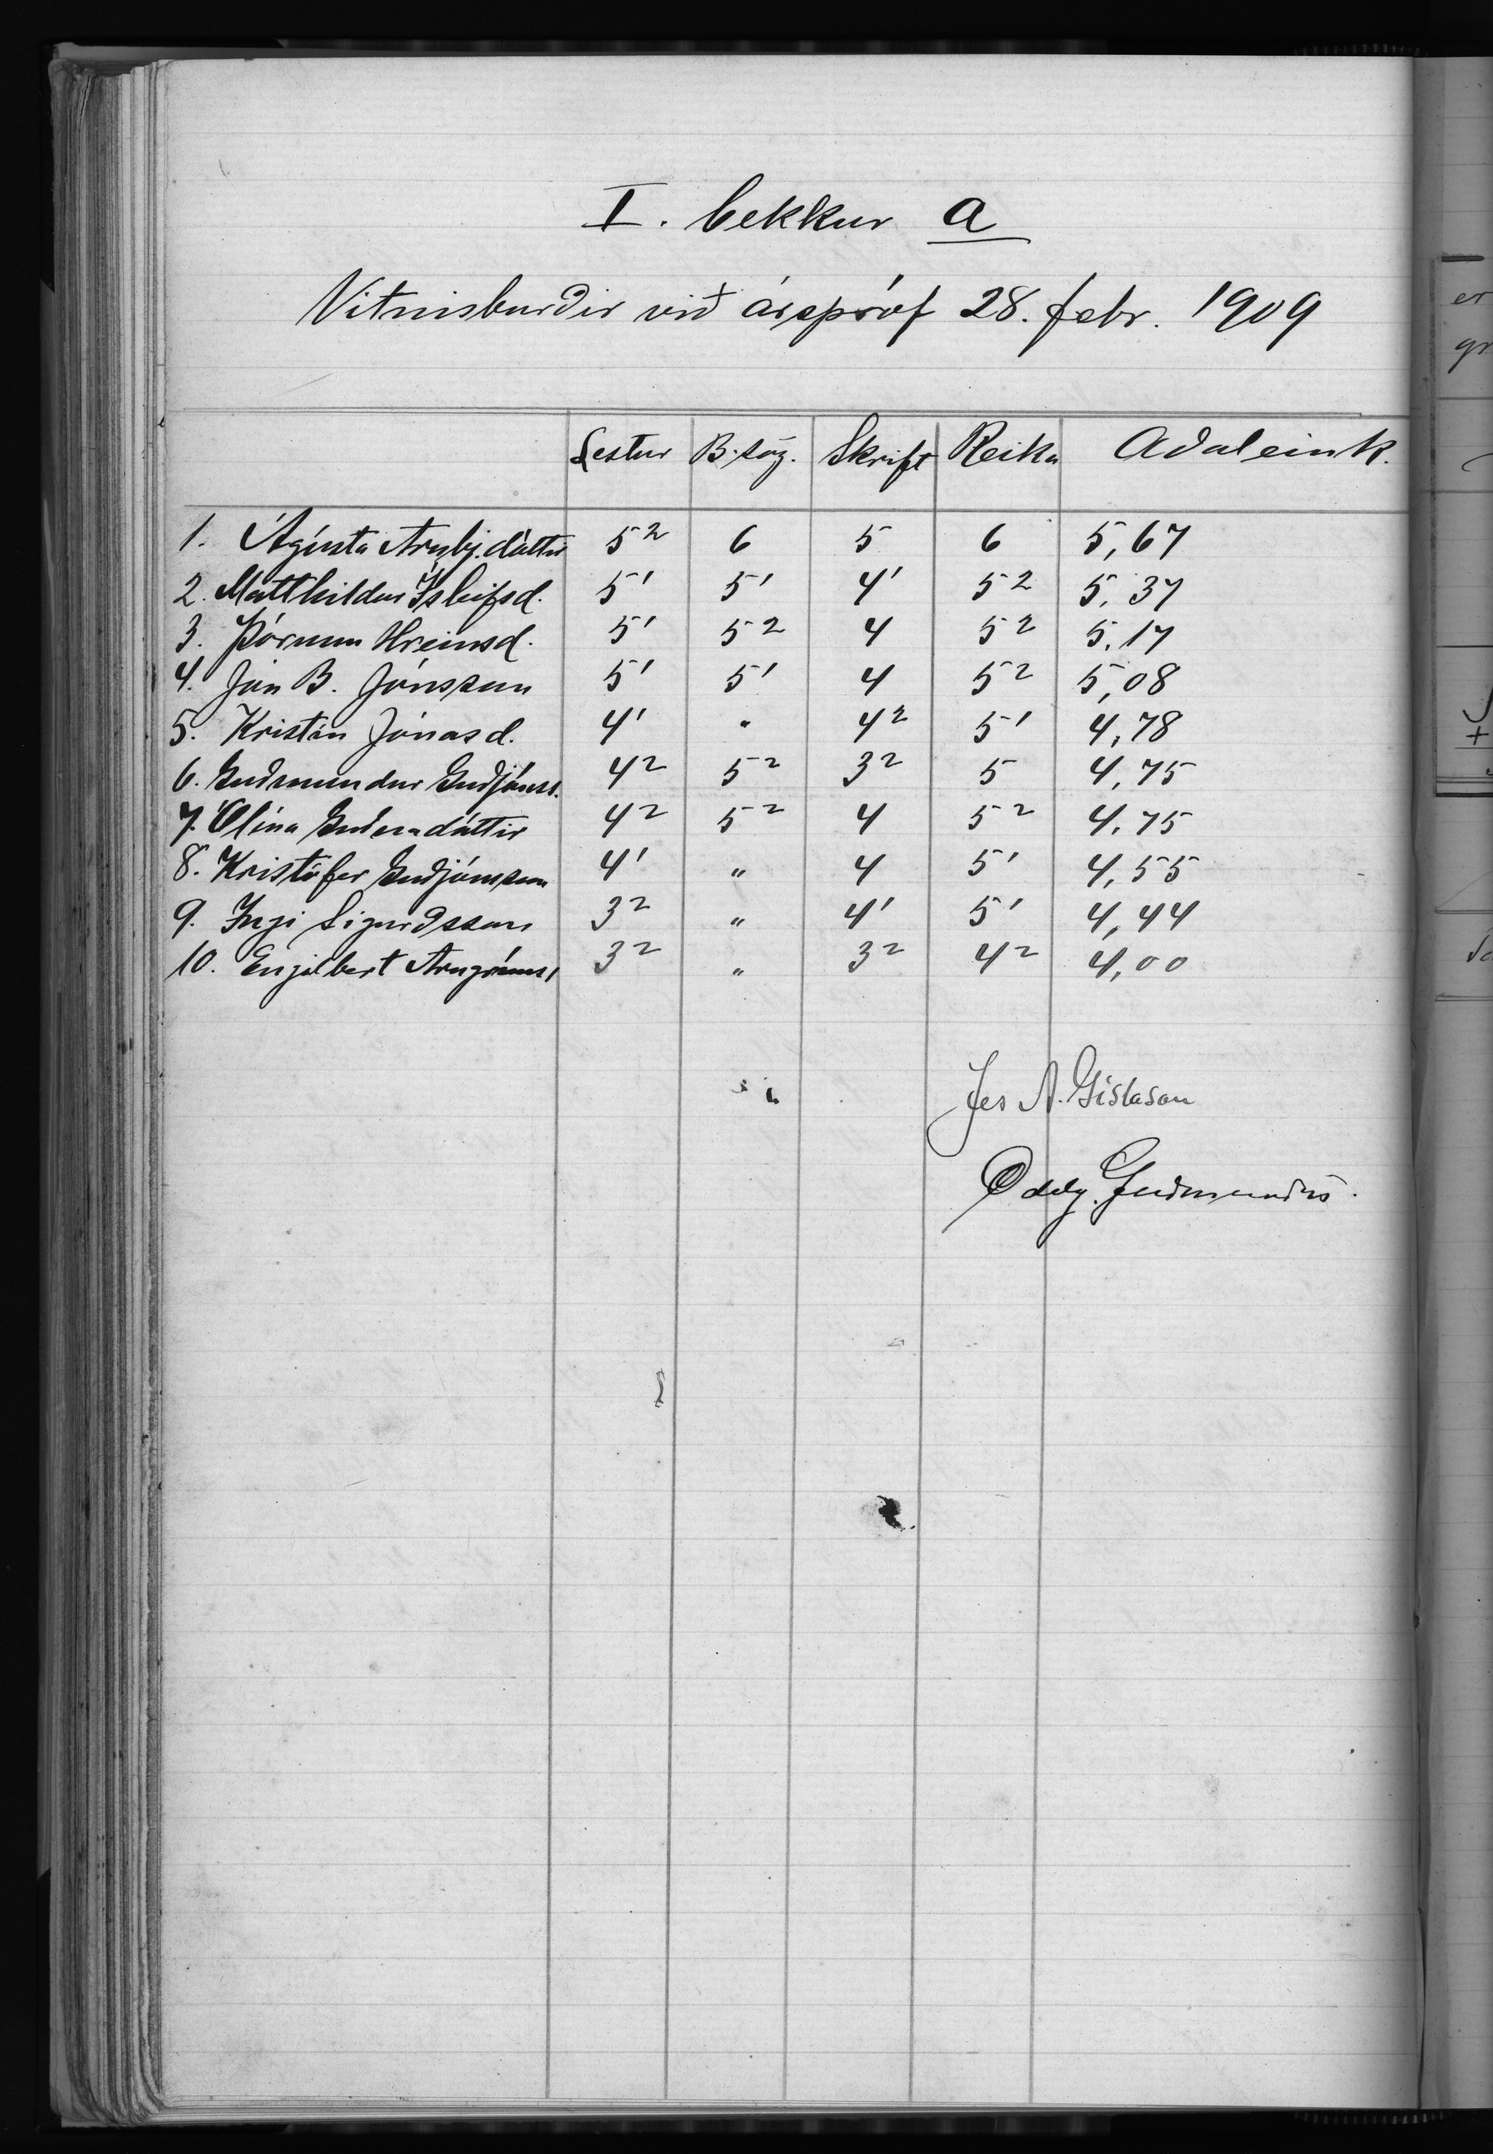 I. bekkur a
Vitnisburðir við árspróf 28. febr. 1909
Lestur B. sög. Skrift Reikn Aðaleink.
1. Ágústa Arnbj.dóttir 5² 6 5 6 5,67
2. Matthildur Ísleifsd. 5' 5' 4' 5² 5,37
3. Þórunn Hreinsd. 5' 5² 4 5² 5,17
4. Jón B. Jónsson 5' 5' 4 5² 5,08
5. Kristín Jónasd. 4' " 4² 5' 4,78
6. Guðmundur Guðjónss. 4² 5² 3² 5 4,75
7. Ólína 4² 5² 4 5² 4,75
8. Kristófer Guðjónsson 4' " 4 5' 4,55
9. Ingi Sigurðsson 3² " 4' 5' 4,44
10. Engilbert 3² " 3² 4² 4,00
Jes A. Gíslason
Oddg. Guðmunds.
er
gr